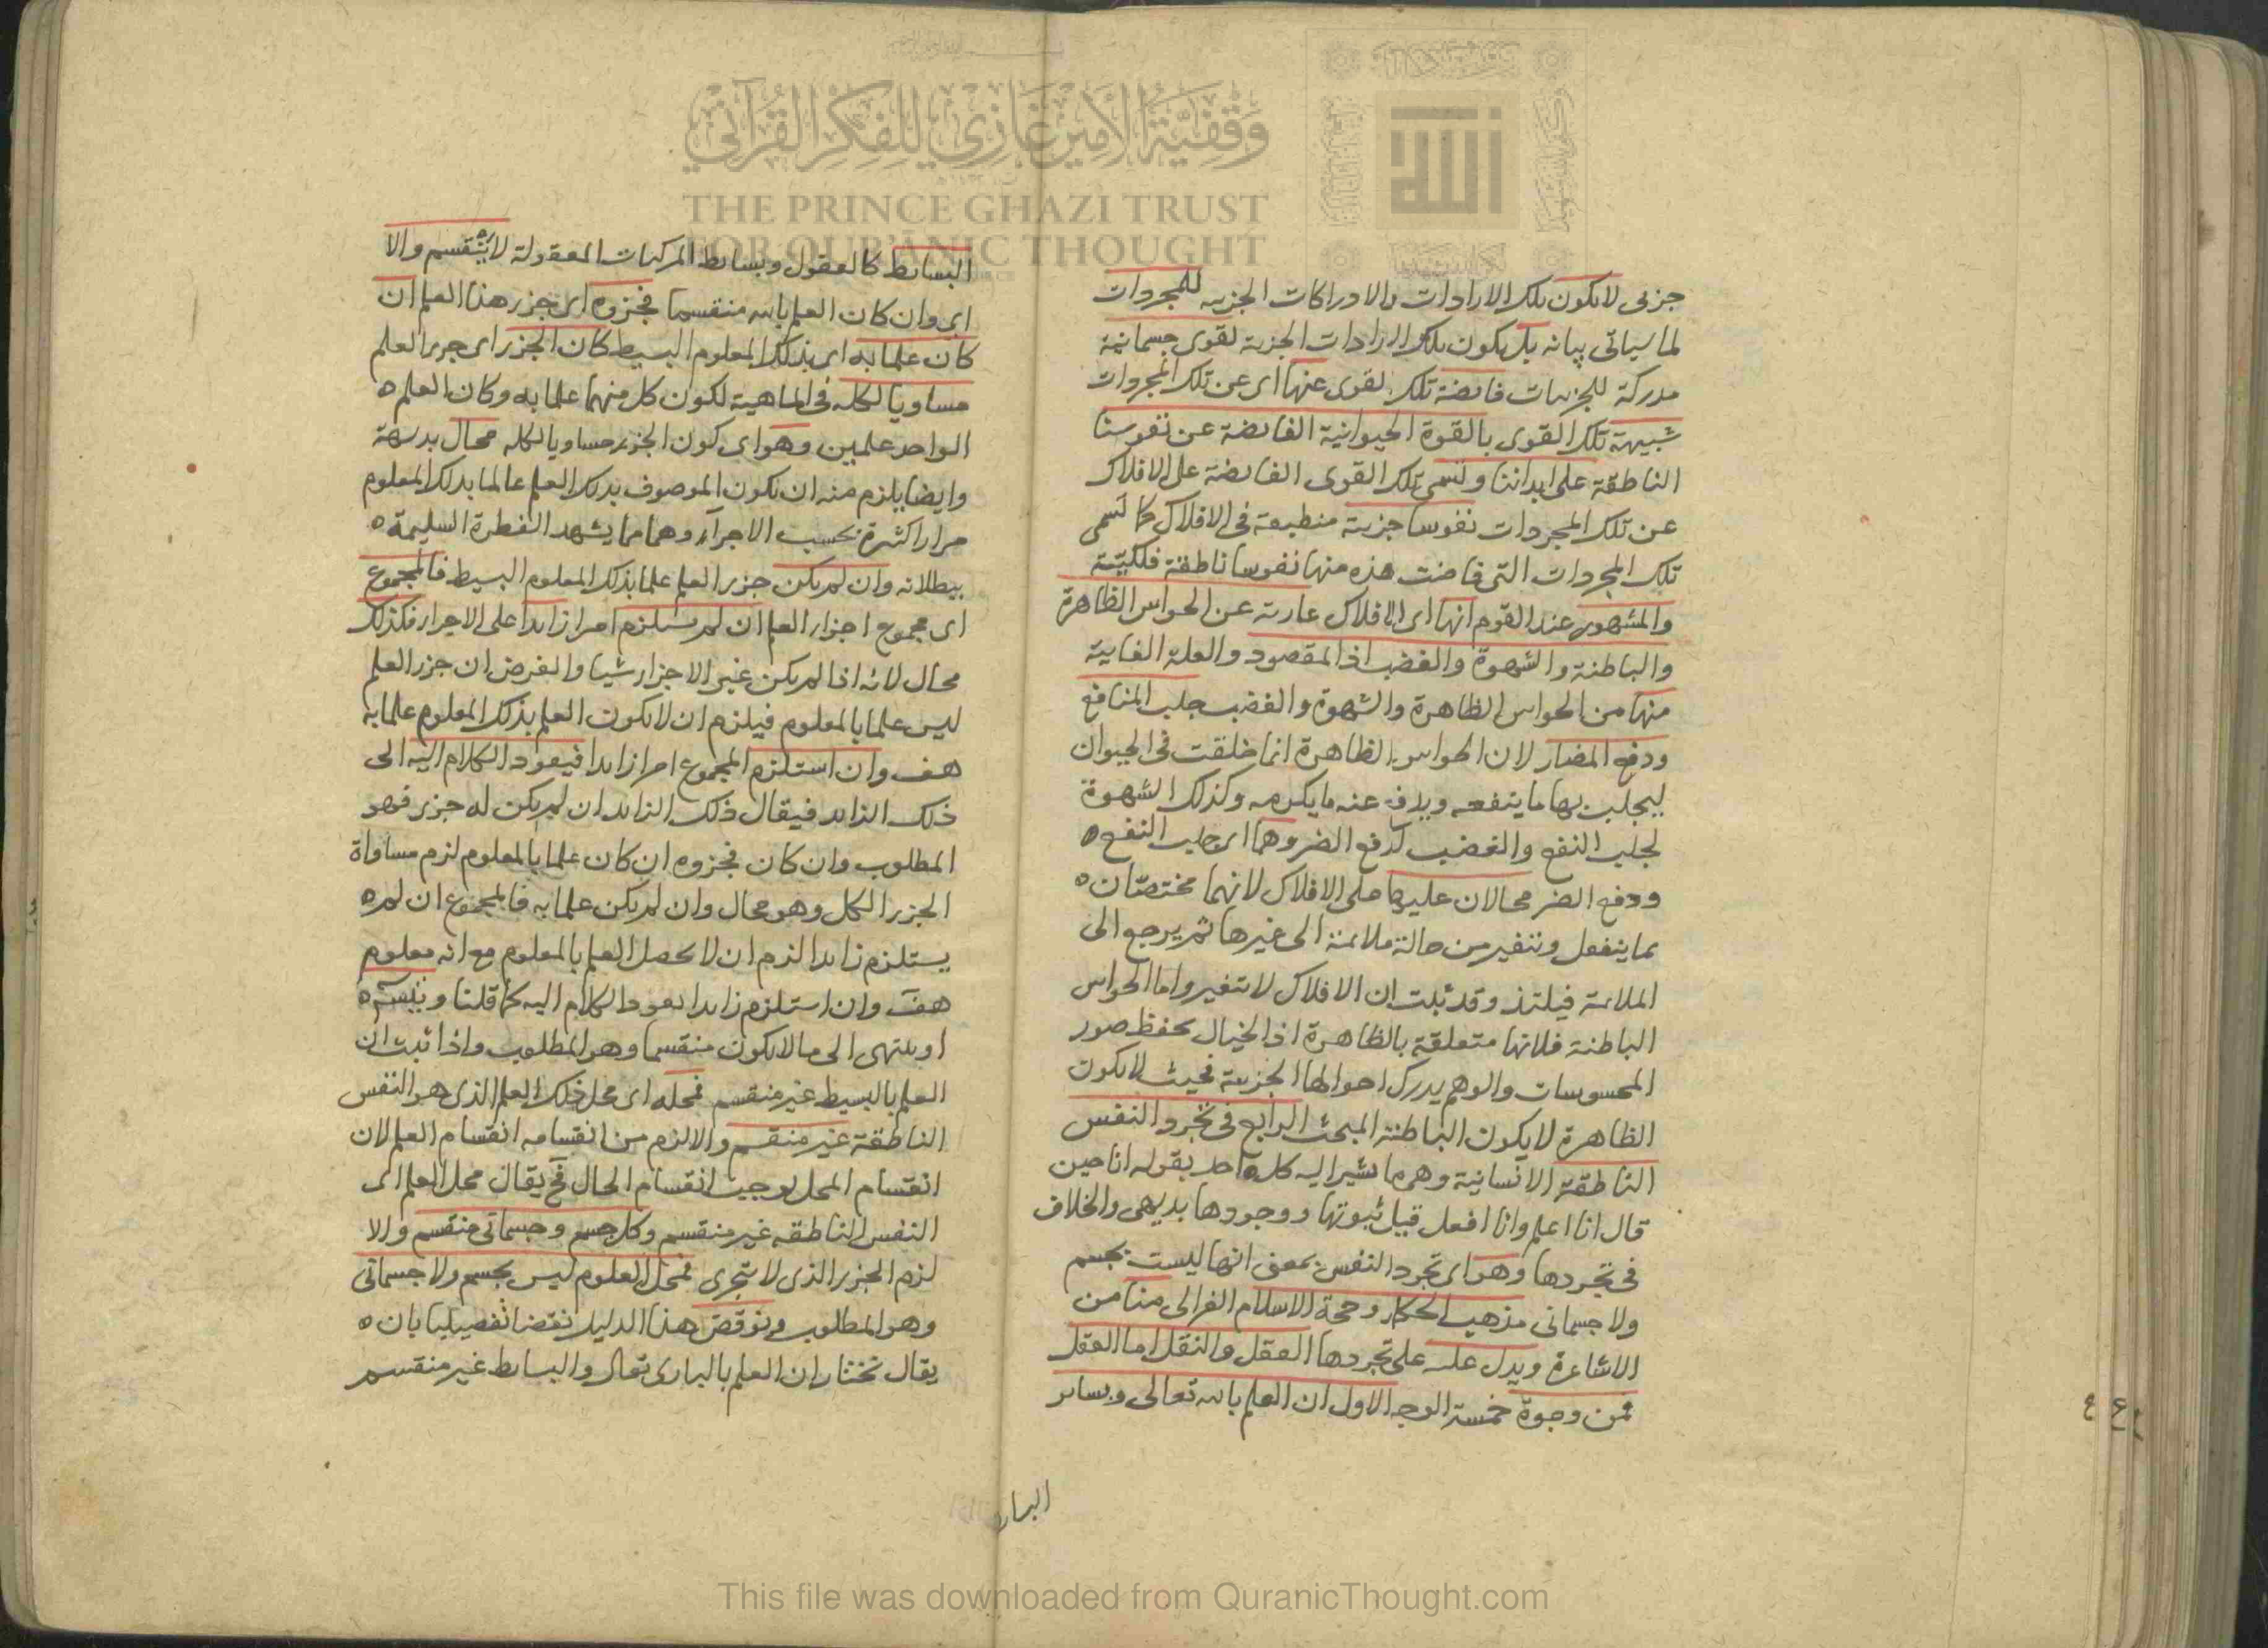 جزئى لا تكون تلك الارادات والادراكات الجزيية للمجردات
لما سياتى بيانه بل يكون تلك الارادات الجزية لقوى جسمانية
مدركة للجزييات فايضة تلك القوى عنها اى عن تلك المجردات
شبيهة تلك القوى بالقوة الحيوانية الفايضة عن نفوسنا
الناطقة على ابداننا وتسمى تلك القوى الفايضة على الافلاك
عن تلك المجردات نفوسا جزية منطبعة فى الافلاك كما تسمى
تلك المجردات التى فاضت هذه منها نفوسا ناطقة فلكيّة
والمشهور عند القوم انها اى الافلاك عارية عن الحواس الظاهرة
والباطنة والشهوة والغضب اذ المقصود والعلة الغايية
منها من الحواس الظاهرة والشهوة والغضب جلب المنافع
ودفع المضار لان الحواس الظاهرة انما خلقت فى الحيوان
ليجلب بها ما ينفعه ويدفع عنه ما يكرهه وكذلك الشهوة
لجلب النفع والغضب لدفع الضر وهما اى جلب النفع
ودفع الضر محالان عليها على الافلاك لانهما مختصّان
بما ينفعل ويتغير من حالة ملايمة الى غيرها ثم يرجع الى
الملايمة فيلتذ وقد ثبت ان الافلاك لا تتغير واما الحواس
الباطنة فلانها متعلقة بالظاهرة اذ الخيال يحفظ صور
المحسوسات والوهم يدرك احوالها الجزيية فحيث لا يكون
الظاهرة لا يكون الباطنة المبحث الرابع فى تجرد النفس
الناطقة الانسانية وهى ما يشير اليه كل واحد بقوله انا حين
قال انا اعلم وانا افعل قيل ثبوتها ووجودها بديهى والخلاف
فى تجردها وهو اى تجرد النفس بمعنى انها ليست بجسم
ولا جسمانى مذهب الحكماء وحجة الاسلام الغزالى منا من
الاشاعرة ويدل عليه على تجردها العقل والنقل اما العقل
فمن وجوة خمسة الوجه الاول ان العلم بالله تعالى وبساير
البساي
البسايط كالعقول وبسايط المركبات المعقولة لا ينقسم والا
اى وان كان العلم بالله منقسما فجزوه اى جزء هذا العلم ان
كان علما به اى بذلك المعلوم البسيط كان الجزء اى جزء العلم
مساويا لكله فى الماهية لكون كل منهما علما به وكان العلم
الواحد علمين وهو اى كون الجزء مساويا لكله محال بديهة
وايضا يلزم منه ان يكون الموصوف بذلك العلم عالما بذلك المعلوم
مرارا كثيرة بحسب الاجزاء وهما مما يشهد الفطرة السليمة
ببطلانه وان لم يكن جزء العلم علما بذلك المعلوم البسيط فالمجموع
اى مجموع اجزاء العلم ان لم يستلزم امرا زايدا على الاجزاء فكذلك
محال لانه اذا لم يكن غير الاجزاء شيا والفرض ان جزء العلم
ليس علما بالمعلوم فيلزم ان لا يكون العلم بذلك المعلوم علما به
هف وان استلزم المجموع امرا زايدا فيعود الكلام اليه الى
ذلك الزايد فيقال ذلك الزايد ان لم يكن له جزء فهو
المطلوب وان كان فجزوه ان كان علما بالمعلوم لزم مساواة
الجزء الكل وهو محال وان لم يكن علما به فالمجموع ان لم
يستلزم زايدا لزم ان لا يحصل العلم بالمعلوم مع انه معلوم
هف وان استلزم زايدا يعود الكلام اليه كما قلنا
او ينتهى الى ما لا يكون منقسما وهو المطلوب واذا ثبت ان
العلم بالبسيط غير منقسم فمحله اى محل ذلك العلم الذى هو النفس
الناطقة غير منقسم والا لزم من انقسامه انقسام العلم لان
انقسام المحل يوجب انقسام الحال فح يقال محل العلم اى
النفس الناطقه غير منقسم وكل جسم وجسمانى منقسم والا
لزم الجزء الذى لا يتجزى فمحل العلوم ليس بجسم ولا جسمانى
وهو المطلوب ونوقض هذا الدليل نقضا تفصيليا بان
يقال نختار ان العلم بالبارى تعالى والبسايط غير منقسم
وقفية الأمير غازي للفكر القرآني
THE PRINCE GHAZI TRUST
FOR QUR'ANIC THOUGHT
This file was downloaded from QuranicThought.com